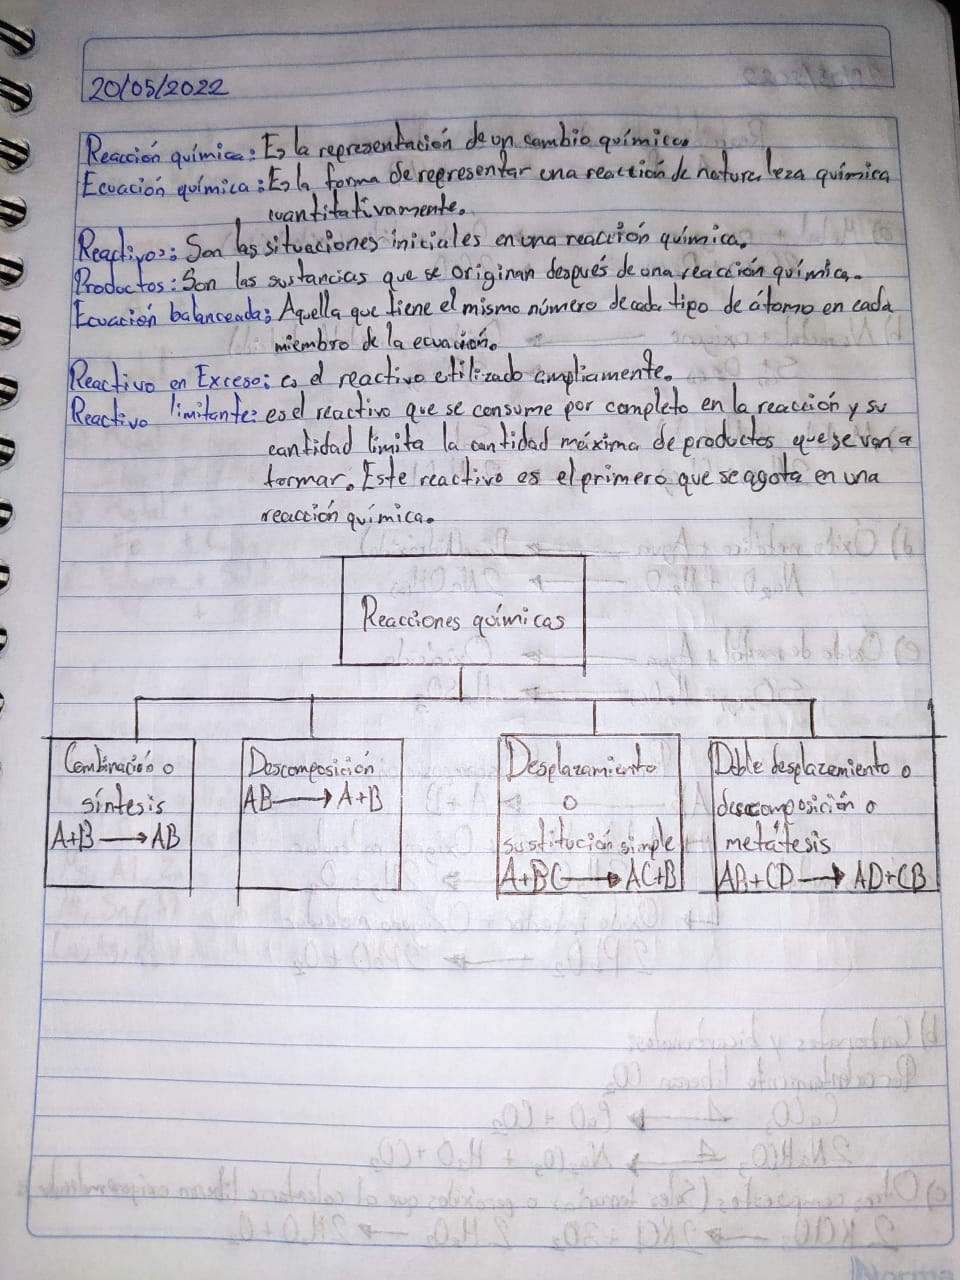 20/05/2022
Reacción química: Es la representación de un cambio químico.
Ecuación química: Es la forma de representar una reacción de naturaleza química
cuantitativamente.
Reactivos: Son las situaciones iniciales en una reacción química.
Productos: Son las sustancias que se originan después de una reacción química.
Ecuación balanceada: Aquella que tiene el mismo número de cada tipo de átomo en cada
miembro de la ecuación.
Reactivo en Exceso: es el reactivo utilizado ampliamente.
Reactivo limitante: es el reactivo que se consume por completo en la reacción y su
cantidad limita la cantidad máxima de productos que se van a
formar. Este reactivo es el primero que se agota en una
reacción química.
Reacciones químicas
Combinación o
síntesis
A+B → AB
Descomposición
AB → A+B
Desplazamiento
o
sustitución simple
A+BC → AC+B
Doble desplazamiento o
descomposición o
metátesis
AB+CD → AD+CB